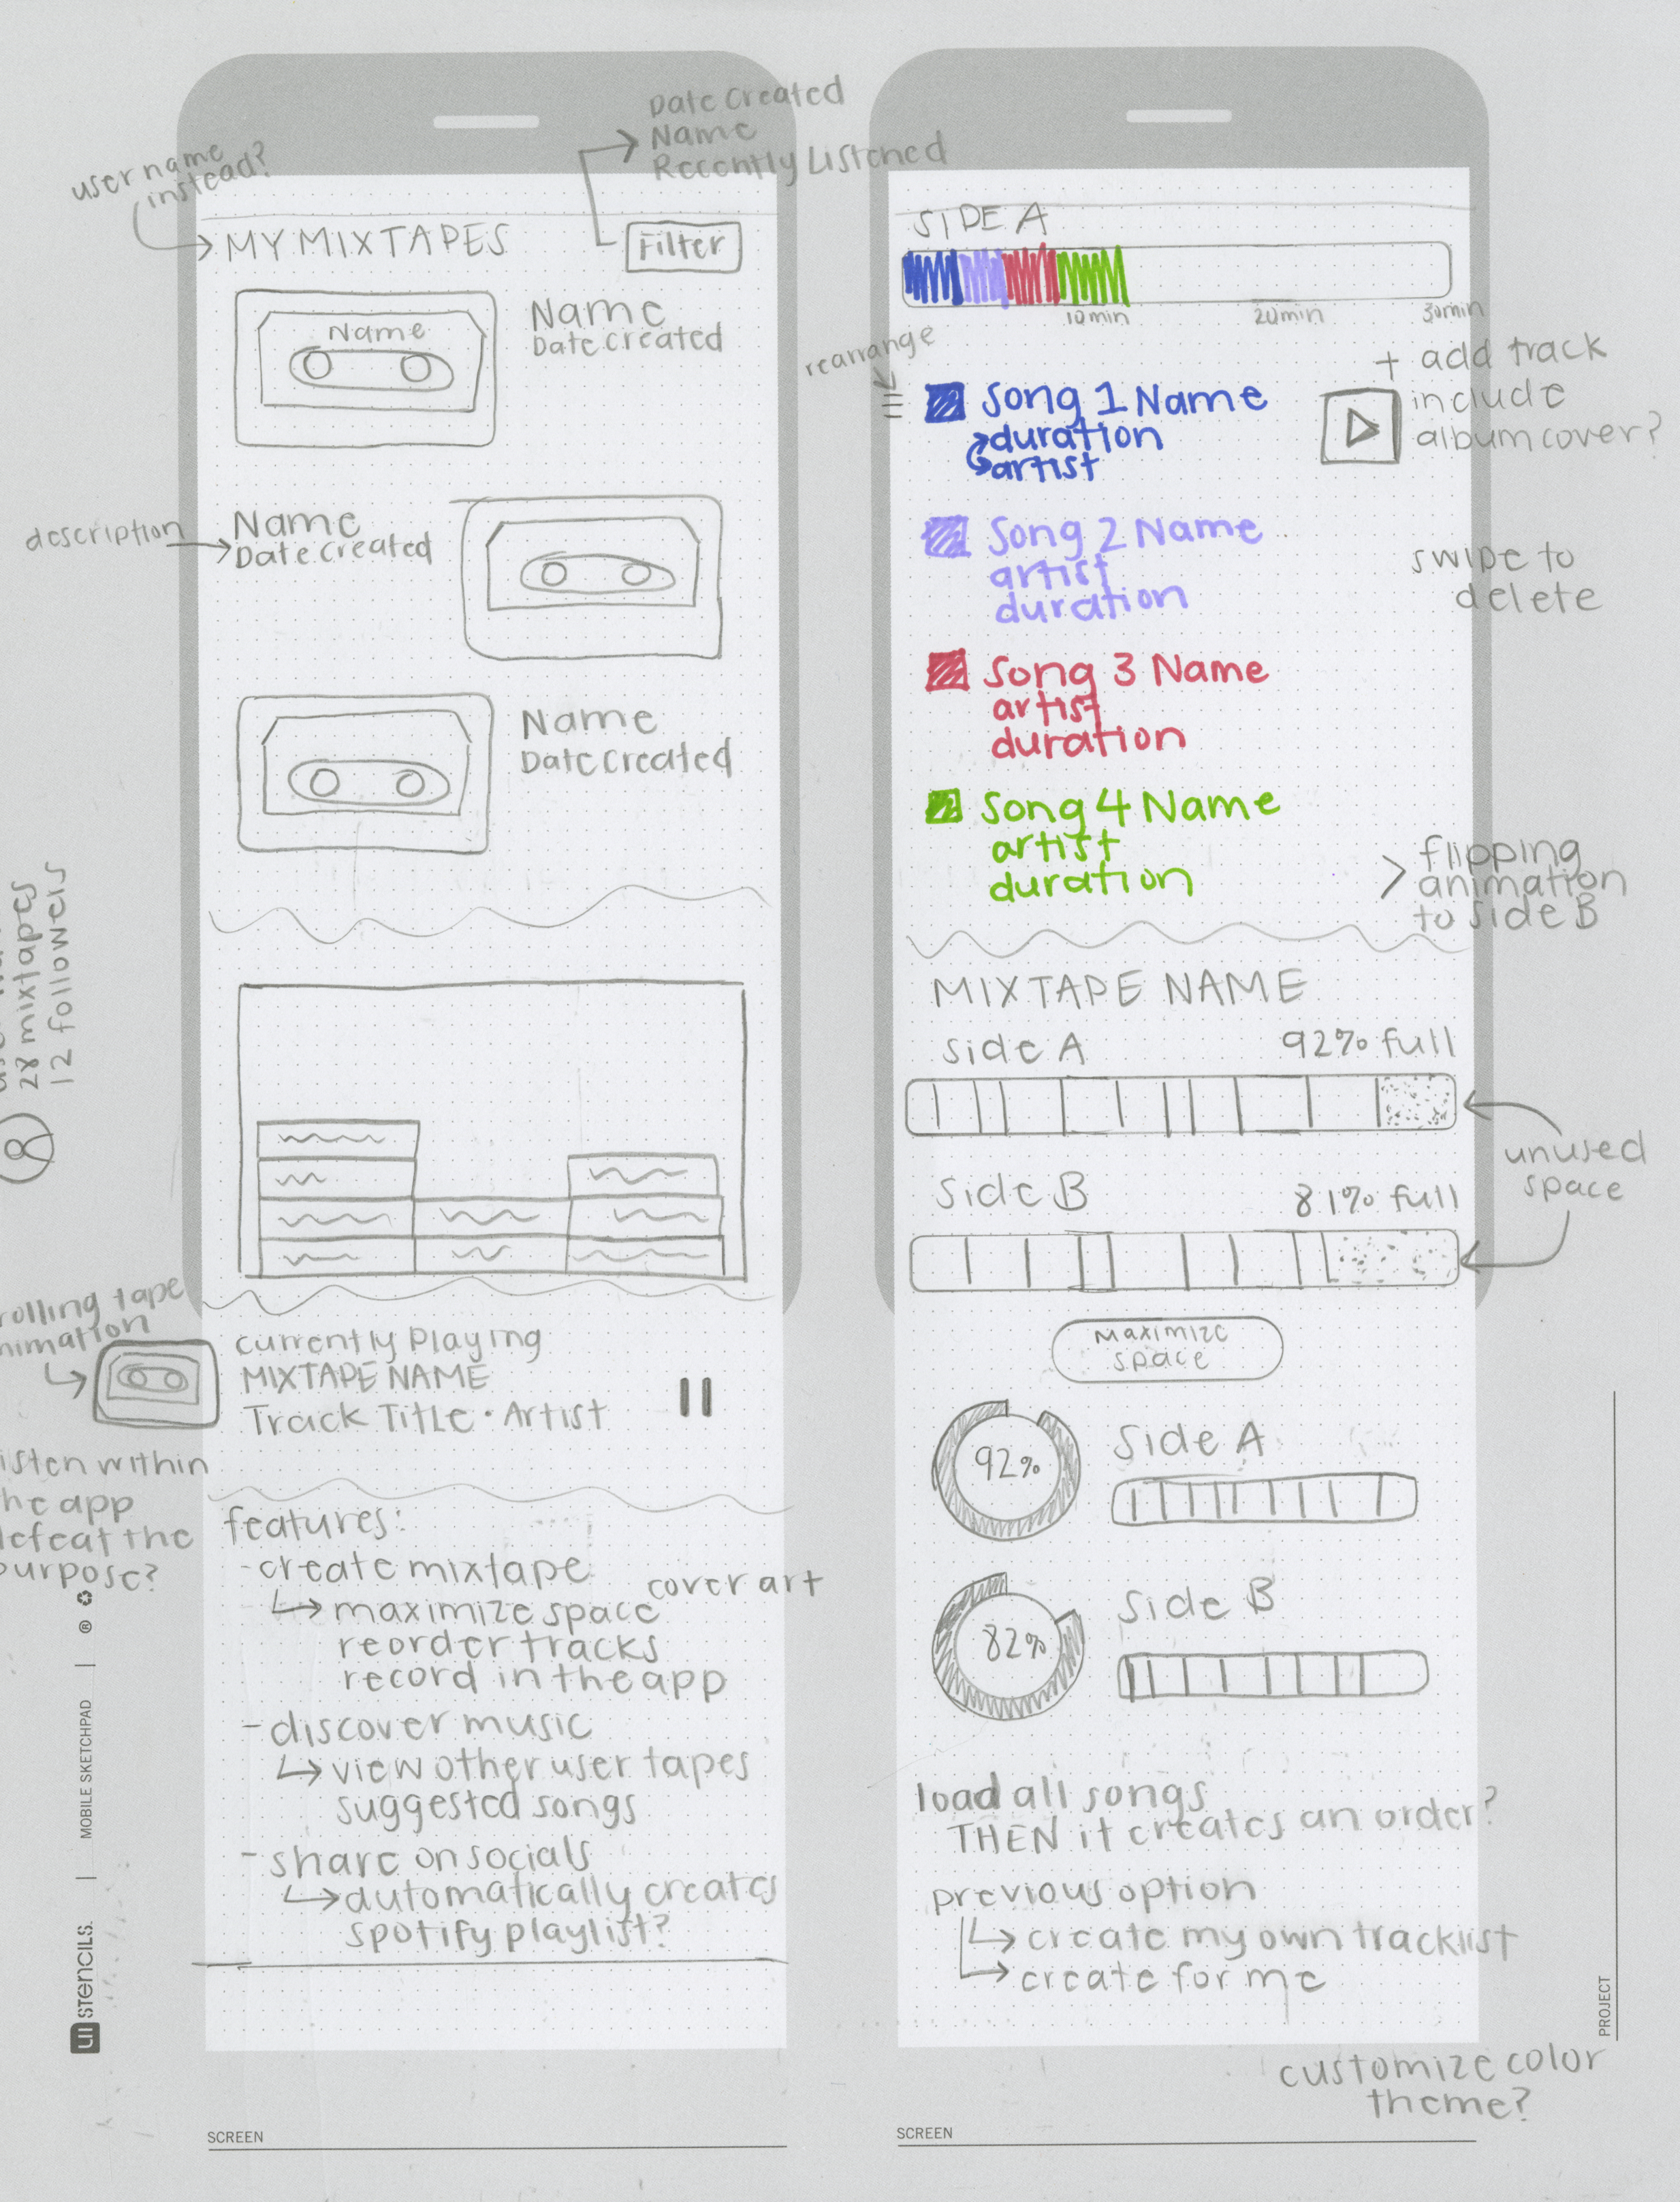 user name
instead?
Date Created
Name
Recently Listened
MY MIXTAPES
Filter
Name
Name
Date Created
description
Name
Date Created
Name
Date Created
28 mixtapes
12 followers
rolling tape
animation
Currently Playing
MIXTAPE NAME
Track TITLE · Artist
listen within
the app
defeat the
purpose?
features:
- create mixtape
cover art
maximize space
reorder tracks
record in the app
- discover music
view other user tapes
suggested songs
- share on socials
automatically creates
spotify playlist?
SCREEN
UI STENCILS.
MOBILE SKETCHPAD
®
SIDE A
10min
20min
30min
rearrange
+ add track
include
album cover?
Song 1 Name
duration
artist
Song 2 Name
artist
duration
swipe to
delete
Song 3 Name
artist
duration
Song 4 Name
artist
duration
> flipping
animation
to side B
MIXTAPE NAME
Side A
92% full
Side B
81% full
unused
space
Maximize
space
92%
Side A
82%
Side B
load all songs
THEN it creates an order?
previous option
create my own tracklist
create for me
customize color
theme?
SCREEN
PROJECT